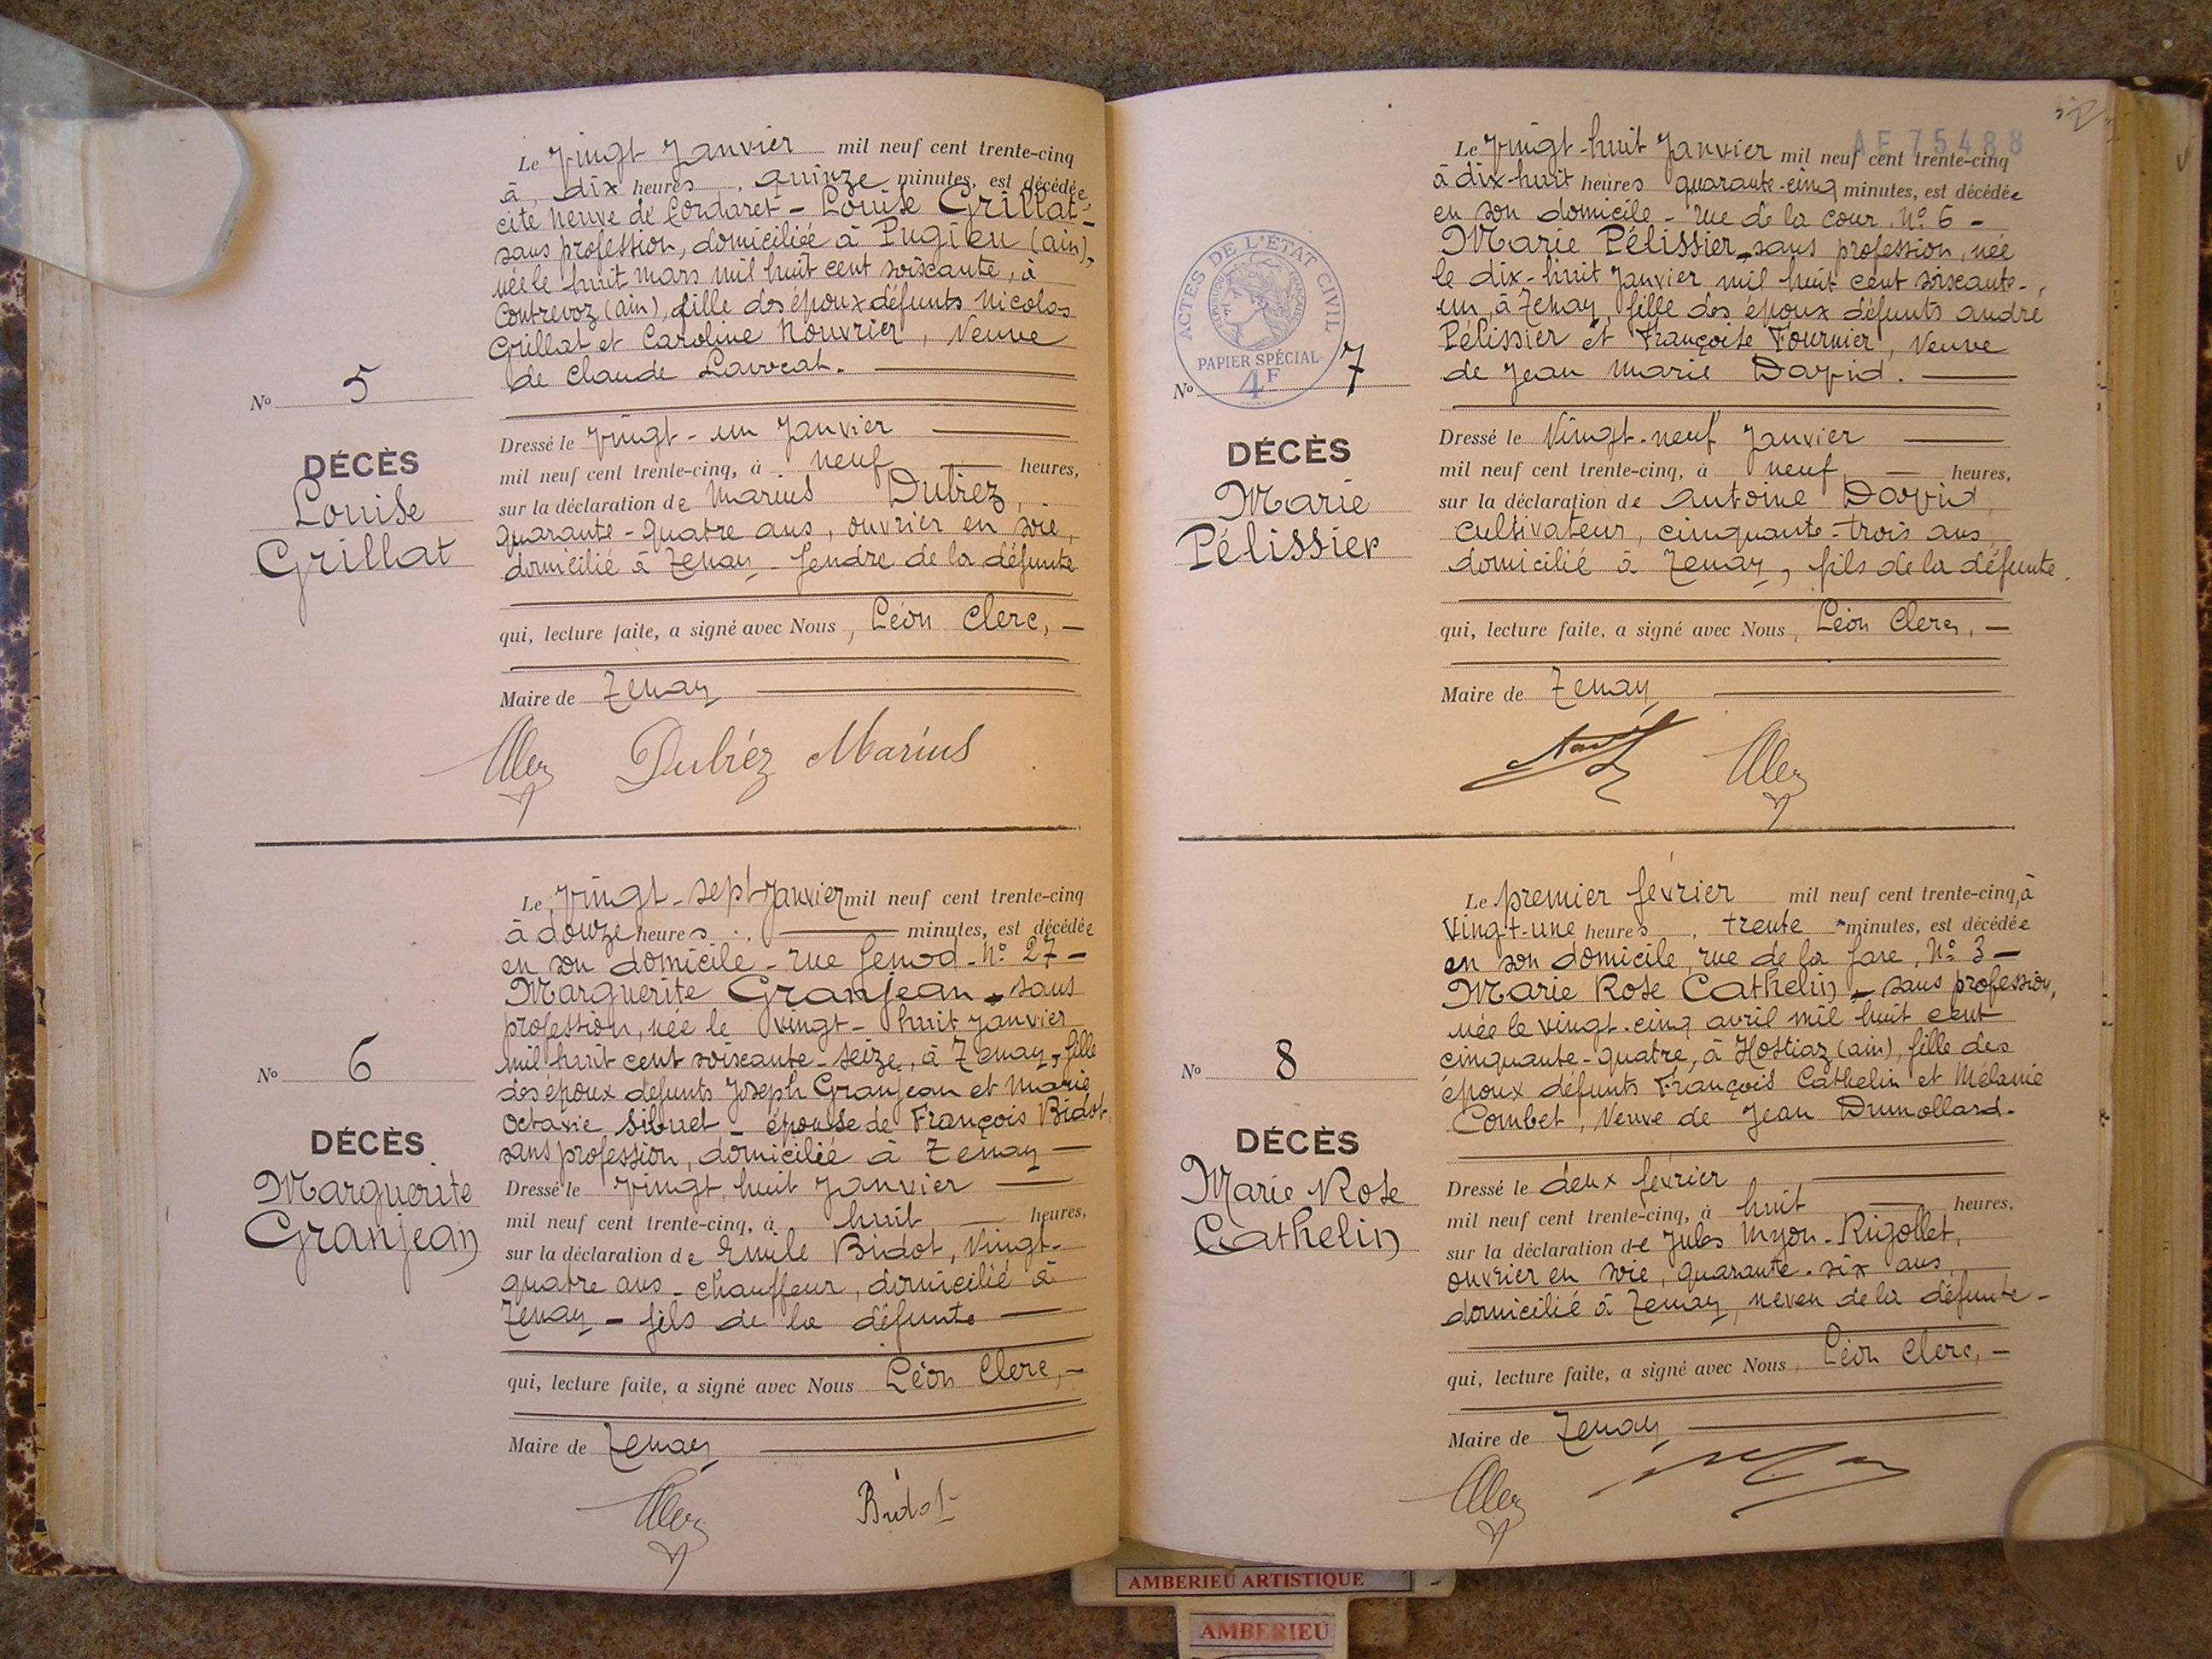 Le vingt Janvier mil neuf cent trente-cinq
à dix heures, quinze minutes, est décédée,
cité neuve de Cordaret - Louise Grillat -
sans profession, domiciliée à Pugieu (ain),
née le huit mars mil huit cent soixante, à
Contrevoz (ain), fille des époux défunts Nicolas
Grillat et Caroline Nouvrier, Veuve
de Claude Lavocat.
No 5
DÉCÈS
Louise
Grillat
Dressé le vingt-un Janvier
mil neuf cent trente-cinq, à neuf heures,
sur la déclaration de Marius Dubiez,
quarante-quatre ans, ouvrier en soie,
domicilié à Tenay - gendre de la défunte
qui, lecture faite, a signé avec Nous, Léon Clerc, -
Maire de Tenay
Dubiez Marius
Le vingt-sept Janvier mil neuf cent trente-cinq
à douze heures minutes, est décédée
en son domicile - rue Genod - No 27 -
Marguerite Granjean - sans
profession, née le vingt-huit Janvier
mil huit cent soixante-seize, à Tenay, fille
des époux défunts Joseph Granjean et Marie
Octavie Sibuet - épouse de François Bidot,
sans profession, domicilié à Tenay -
No 6
DÉCÈS
Marguerite
Granjean
Dressé le vingt huit Janvier
mil neuf cent trente-cinq, à huit heures,
sur la déclaration de Emile Bidot, vingt-
quatre ans - chauffeur, domicilié à
Tenay - fils de la défunte
qui, lecture faite, a signé avec Nous Léon Clerc, -
Maire de Tenay
Bidot
AE 75488
Le vingt-huit Janvier mil neuf cent trente-cinq
à dix-huit heures quarante-cinq minutes, est décédée
en son domicile - rue de la Cour, No 6 -
Marie Pélissier - sans profession, née
le dix-huit Janvier mil huit cent soixante-
un, à Tenay, fille des époux défunts andré
Pélissier et Françoise Fournier, Veuve
de Jean Marie David.
ACTES DE L'ÉTAT CIVIL
PAPIER SPÉCIAL
4F
No 7
DÉCÈS
Marie
Pélissier
Dressé le Vingt-neuf Janvier
mil neuf cent trente-cinq, à neuf heures,
sur la déclaration de Antoine David,
cultivateur, cinquante-trois ans,
domicilié à Tenay, fils de la défunte.
qui, lecture faite, a signé avec Nous, Léon Clerc, -
Maire de Tenay
Le premier février mil neuf cent trente-cinq, à
vingt-une heures, trente minutes, est décédée
en son domicile, rue de la Gare, No 3 -
Marie Rose Cathelin - sans profession,
née le vingt-cinq avril mil huit cent
cinquante-quatre, à Hostiaz (ain), fille des
époux défunts François Cathelin et Mélanie
Combet, Veuve de Jean Dumollard.
No 8
DÉCÈS
Marie Rose
Cathelin
Dressé le deux février
mil neuf cent trente-cinq, à huit heures,
sur la déclaration de Jules Myon-Rigollet,
ouvrier en soie, quarante-six ans,
domicilié à Tenay, neveu de la défunte -
qui, lecture faite, a signé avec Nous, Léon Clerc, -
Maire de Tenay
AMBERIEU ARTISTIQUE
AMBERIEU